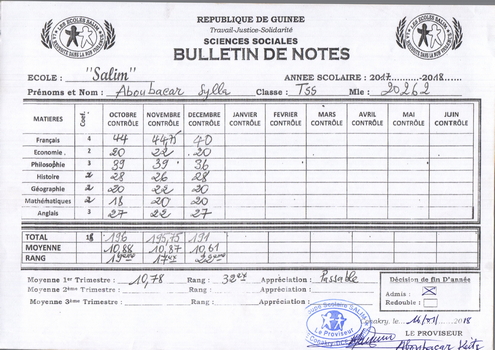 REPUBLIQUE DE GUINEE
Travail-Justice-Solidarité
SCIENCES SOCIALES
BULLETIN DE NOTES
ECOLE : "Salim" ANNEE SCOLAIRE : 2017.........-2018.......
Prénoms et Nom : Aboubacar Sylla Classe : TSS Mle : 20262
MATIERES Coef. OCTOBRE CONTRÔLE NOVEMBRE CONTRÔLE DECEMBRE CONTRÔLE JANVIER CONTRÔLE FEVRIER CONTRÔLE MARS CONTRÔLE AVRIL CONTRÔLE MAI CONTRÔLE JUIN CONTRÔLE
Français 4 44 44,75 40
Economie 2 20 22 20
Philosophie 3 39 39 36
Histoire 2 28 26 28
Géographie 2 20 22 20
Mathématiques 2 18 20 20
Anglais 3 27 22 27
TOTAL 18 196 195,75 191
MOYENNE 10,88 10,87 10,61
RANG 19ème 17ex 22ème
Moyenne 1er Trimestre : 10,78 Rang : 32ex Appréciation : Passable
Décision de fin D'année
Moyenne 2ème Trimestre : Rang : Appréciation :
Admis :
Moyenne 3ème Trimestre : Rang : Appréciation :
Redouble :
Le Proviseur
Conakry, le 2018
LE PROVISEUR
Aboubacar Keita